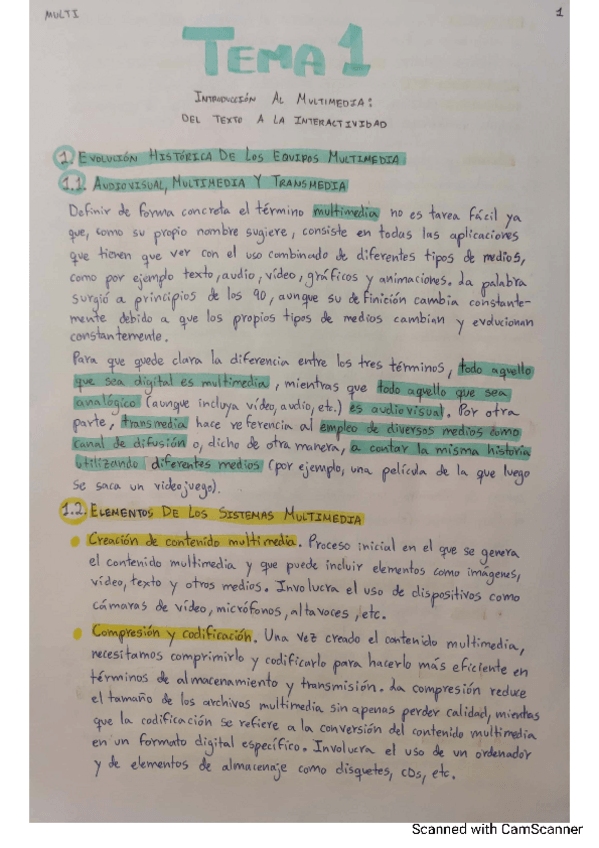 MULTI
1
TEMA 1
INTRODUCCIÓN AL MULTIMEDIA:
DEL TEXTO A LA INTERACTIVIDAD
1. EVOLUCIÓN HISTÓRICA DE LOS EQUIPOS MULTIMEDIA
1.1. AUDIOVISUAL, MULTIMEDIA Y TRANSMEDIA
Definir de forma concreta el término multimedia no es tarea fácil ya
que, como su propio nombre sugiere, consiste en todas las aplicaciones
que tienen que ver con el uso combinado de diferentes tipos de medios,
como por ejemplo texto, audio, vídeo, gráficos y animaciones. La palabra
surgió a principios de los 90, aunque su definición cambia constante-
mente debido a que los propios tipos de medios cambian y evolucionan
constantemente.
Para que quede clara la diferencia entre los tres términos, todo aquello
que sea digital es multimedia, mientras que todo aquello que sea
analógico (aunque incluya vídeo, audio, etc.) es audiovisual. Por otra
parte, transmedia hace referencia al empleo de diversos medios como
canal de difusión o, dicho de otra manera, a contar la misma historia
utilizando diferentes medios (por ejemplo, una película de la que luego
se saca un videojuego).
1.2. ELEMENTOS DE LOS SISTEMAS MULTIMEDIA
• Creación de contenido multimedia. Proceso inicial en el que se genera
el contenido multimedia y que puede incluir elementos como imágenes,
vídeo, texto y otros medios. Involucra el uso de dispositivos como
cámaras de vídeo, micrófonos, altavoces, etc.
• Compresión y codificación. Una vez creado el contenido multimedia,
necesitamos comprimirlo y codificarlo para hacerlo más eficiente en
términos de almacenamiento y transmisión. La compresión reduce
el tamaño de los archivos multimedia sin apenas perder calidad, mientas
que la codificación se refiere a la conversión del contenido multimedia
en un formato digital específico. Involucra el uso de un ordenador
y de elementos de almacenaje como disquetes, CDs, etc.
Scanned with CamScanner